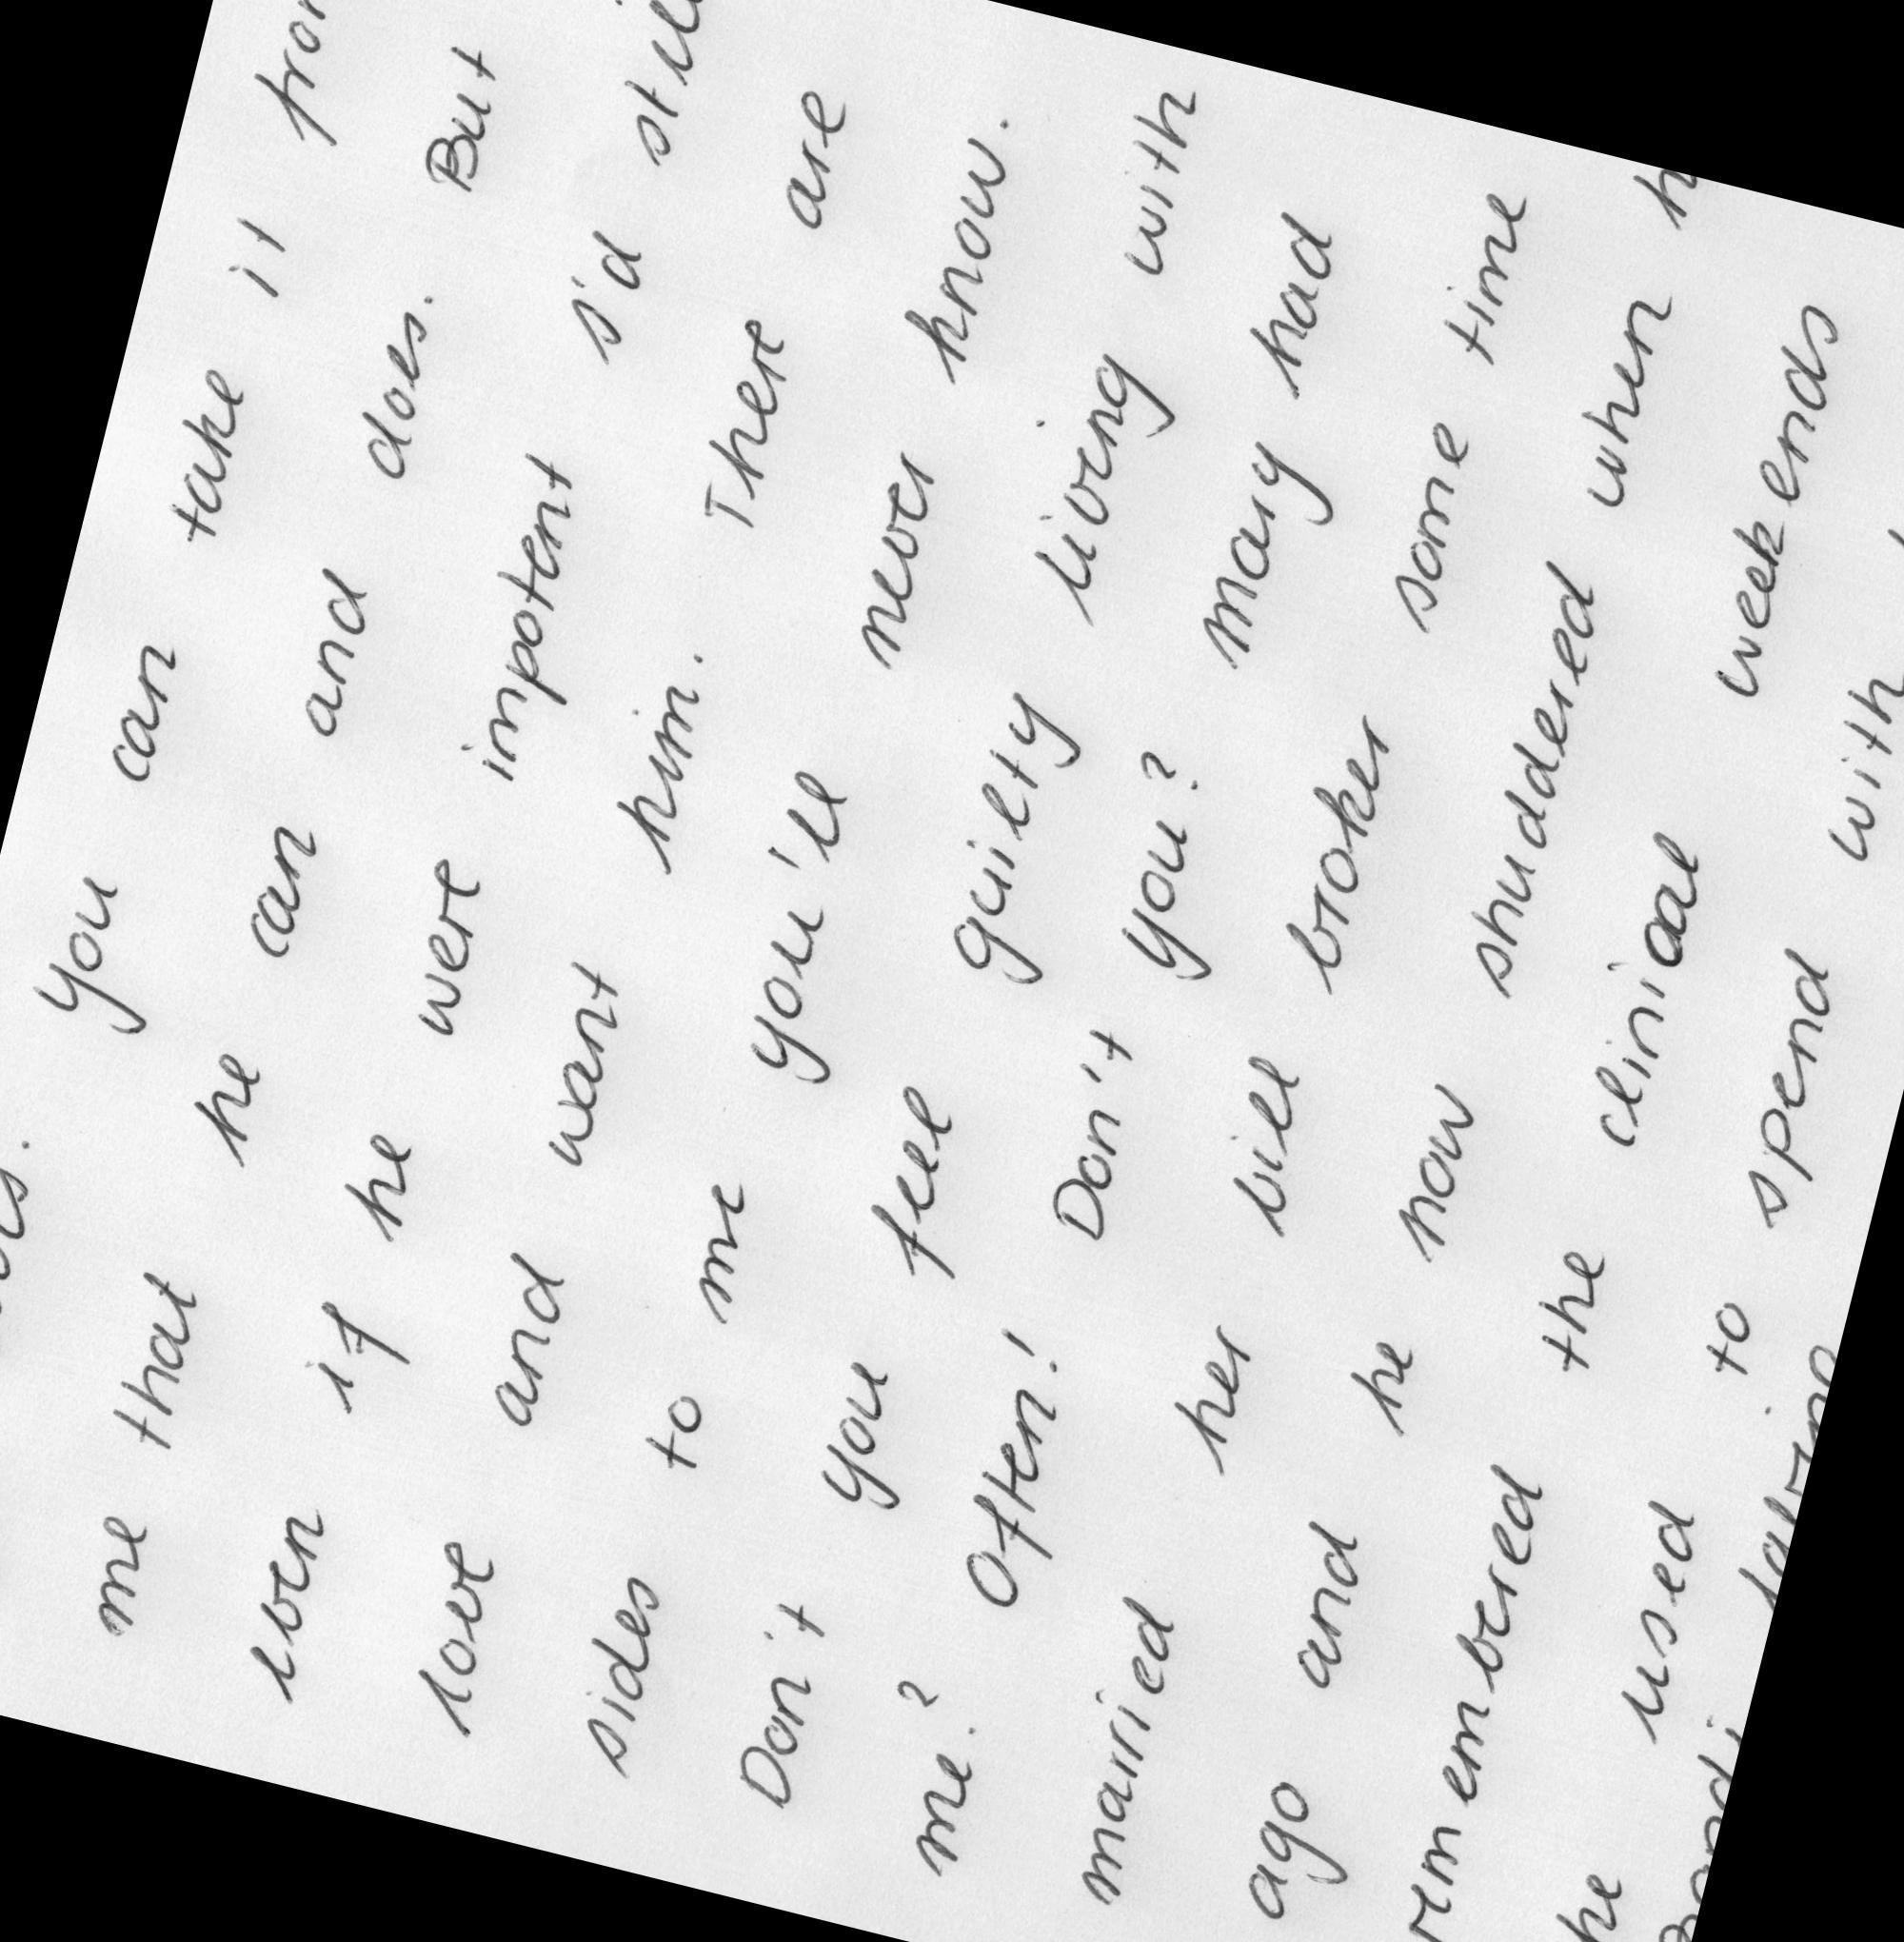 You can take it
me that he can and does. But
even if he were impotent I'd still
love and want him. There are
sides to me you'll never know.
Don't you feel guilty living with
me? Often! Don't you? Mary had
married her bill broker some time
ago and he now shuddered when
remembered the clinical weekends
he used to spend with